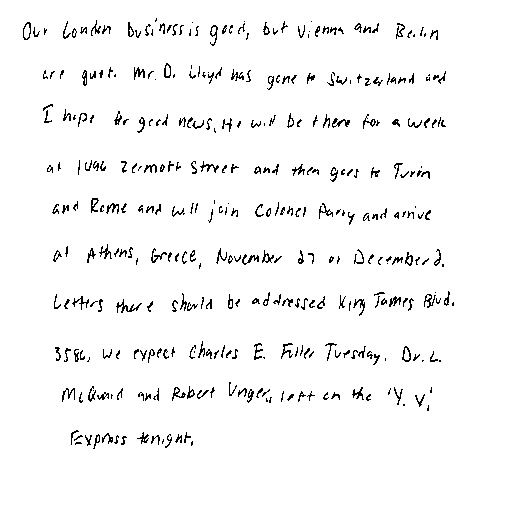 Our London business is good, but Vienna and Berlin
are quiet. Mr. D. Lloyd has gone to Switzerland and
I hope for good news. He will be there for a week
at 1496 Zermott Street and then goes to Turin
and Rome and will join Colonel Parry and arrive
at Athens, Greece, November 27 or December 2.
Letters there should be addressed King James Blvd.
3586. We expect Charles E. Fuller Tuesday. Dr. L.
McQuaid and Robert Unger, left on the 'Y. V.'
Express tonight.